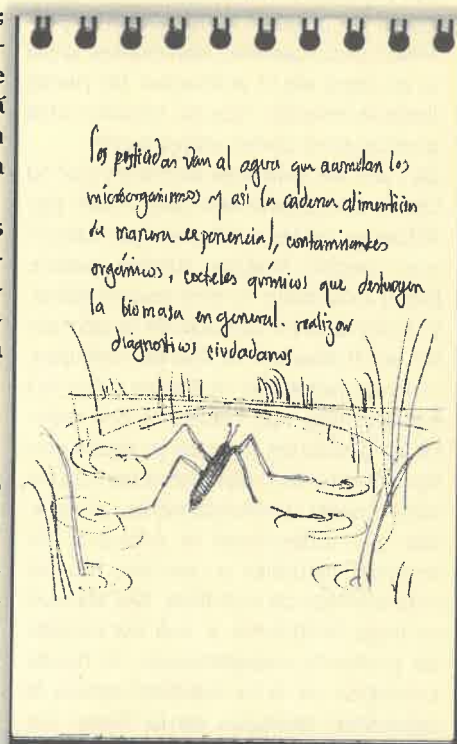 los pesticidas van al agua que acumulan los
microorganismos y así la cadena alimenticia
de manera exponencial, contaminantes
orgánicos, cocteles químicos que destruyen
la biomasa en general. realizar
diagnosticos ciudadanos